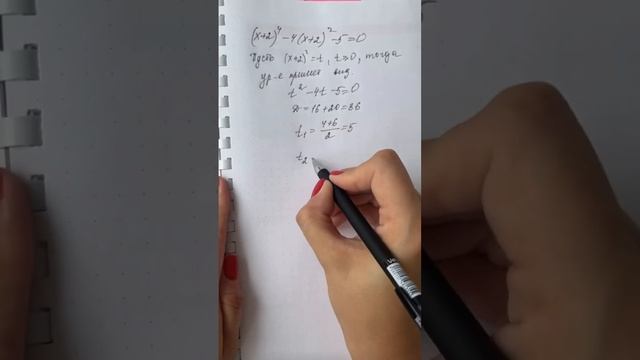 (x+2)⁴-4(x+2)²-5=0
Пусть (x+2)²=t, t⩾0, тогда
ур-е примет вид
t²-4t-5=0
D=16+20=36
t₁=(4+6)/2=5
t₂